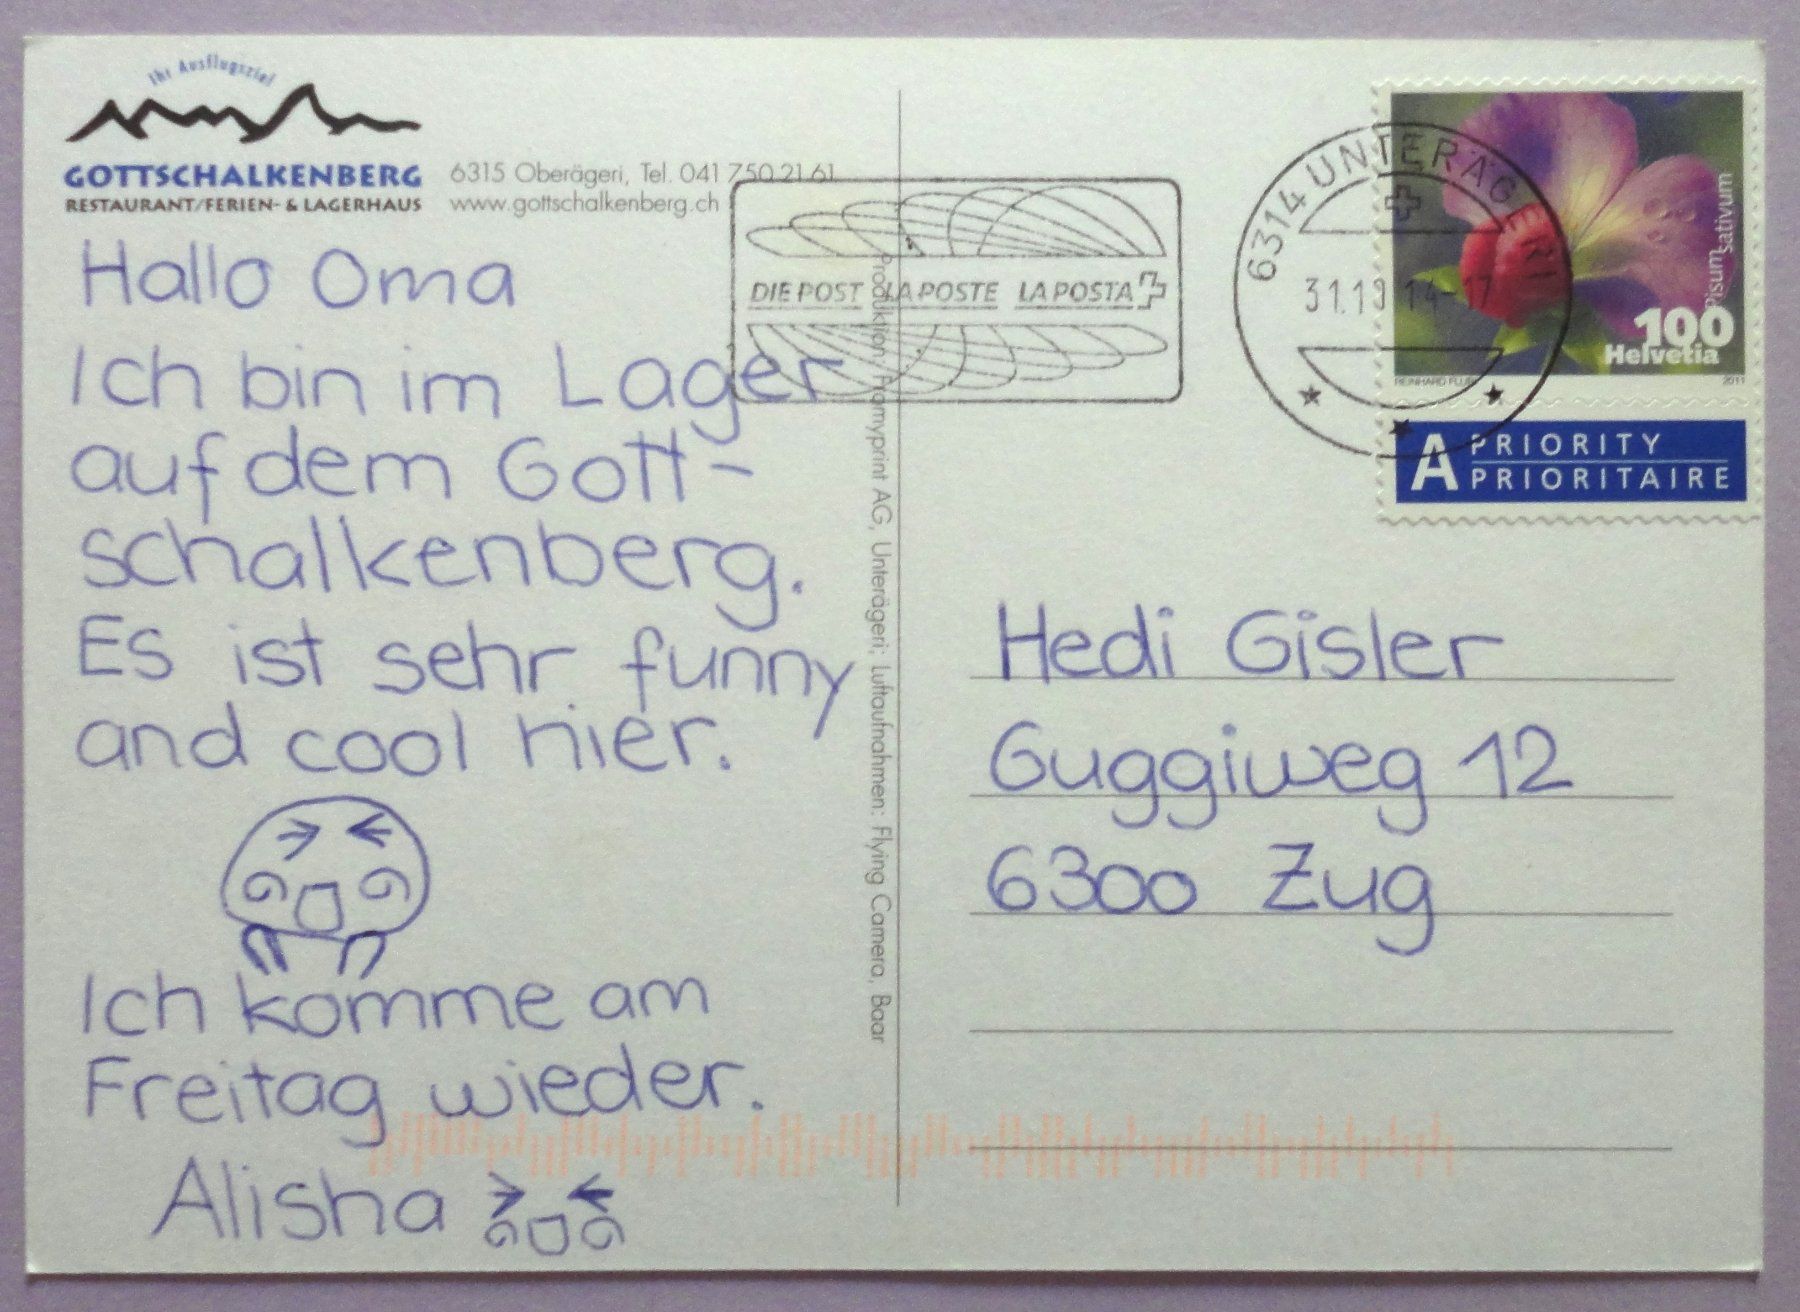 Ihr Ausflugsziel
GOTTSCHALKENBERG
RESTAURANT/FERIEN- & LAGERHAUS
6315 Oberägeri, Tel. 041 750 21 61
www.gottschalkenberg.ch
Hallo Oma
Ich bin im Lager
auf dem Gott-
schalkenberg.
Es ist sehr funny
and cool hier.
Ich komme am
Freitag wieder.
Alisha
Produktion: Framyprint AG, Unterägeri; Luftaufnahmen: Flying Camera, Baar
DIE POST LA POSTE LA POSTA
6314 UNTERÄGERI
Pisum sativum
100
Helvetia
2011
A PRIORITY
PRIORITAIRE
Hedi Gisler
Guggiweg 12
6300 Zug